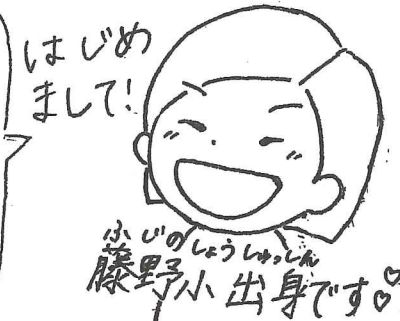 はじめ
まして!
ふじのしょうしゅっしん
藤野小出身です♡♡